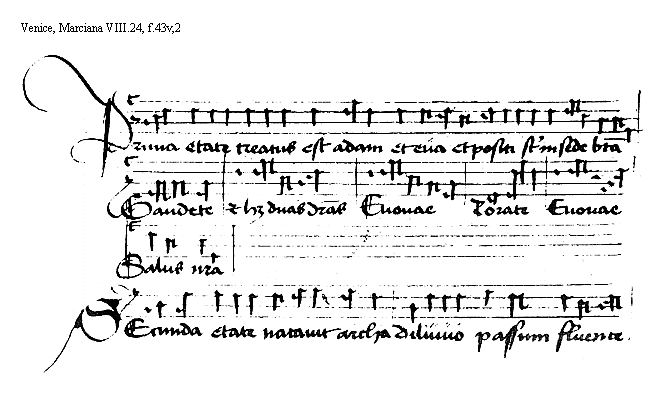 Venice, Marciana VIII.24, f.43v,2
Prima etate creatus est adam et eua et positi st' in sede
Gaudete Euouae Rorate Euouae
Salus nr̄a
Secunda etate natauit archa diluuio passum fluente.